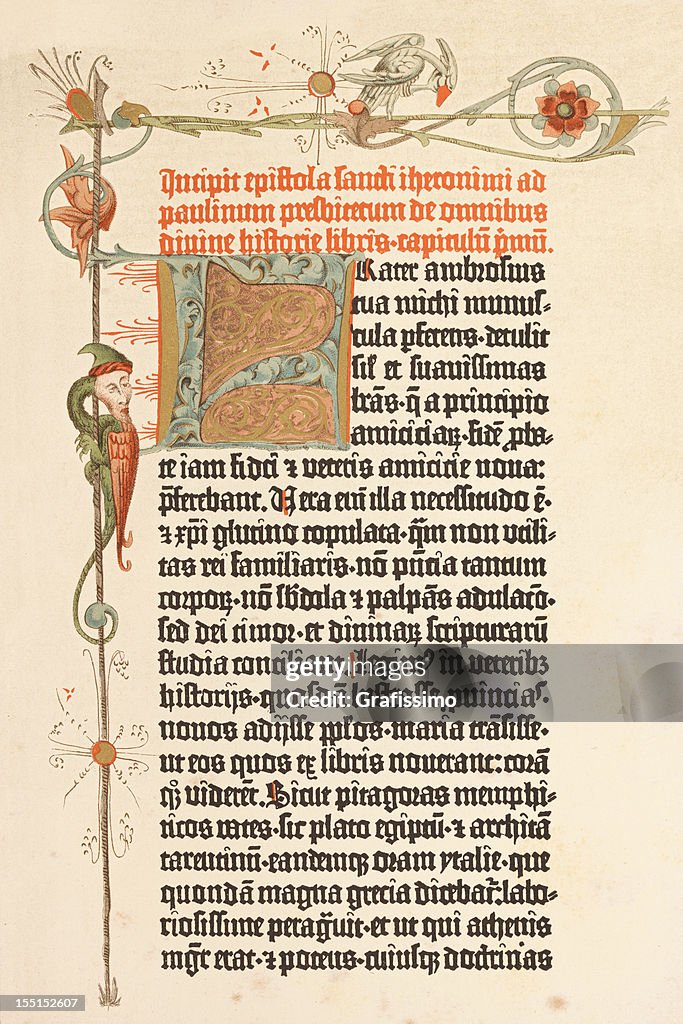 Incipit epistola sancti iheronimi ad
paulinum presbiterum de omnibus
divine historie libris·capitulū p̄mū.
Frater ambrosius
tua michi munus-
cula p̄ferens·detulit
sil̄ et suavissimas
l̄ras·q̄ a principio
amiciciaꝝ·fidē ꝓba-
te iam fidei ⁊ veteris amicicie nova:
p̄ferebant. Vera eni̅ illa necessitudo ē·
⁊ xp̄i glutino copulata·qm̄ non utili-
tas rei familiaris·nō pn̄cia tantum
corpoꝝ·nō sb̄dola ⁊ palpās adulacō·
sed dei timor·et divinaꝝ scripturarū
studia conciliant. in veteribꝫ
historijs·quosdā lustrasse ꝓvincias·
novos adijsse ppl̄os·maria trāsisse·
ut eos quos ex libris noverant: corā
qꝫ viderēt. Sicut pitagoras memphi-
ticos vates·sic plato egiptū·⁊ architā
tarentinū·eandemqꝫ oram ytalie·que
quondā magna grecia dicebat̄: labo-
riosissime peragravit·et ut qui athenis
mgr̄ erat·⁊ potens·cuiusqꝫ doctrinas
gettyimages
Grafissimo
155152607